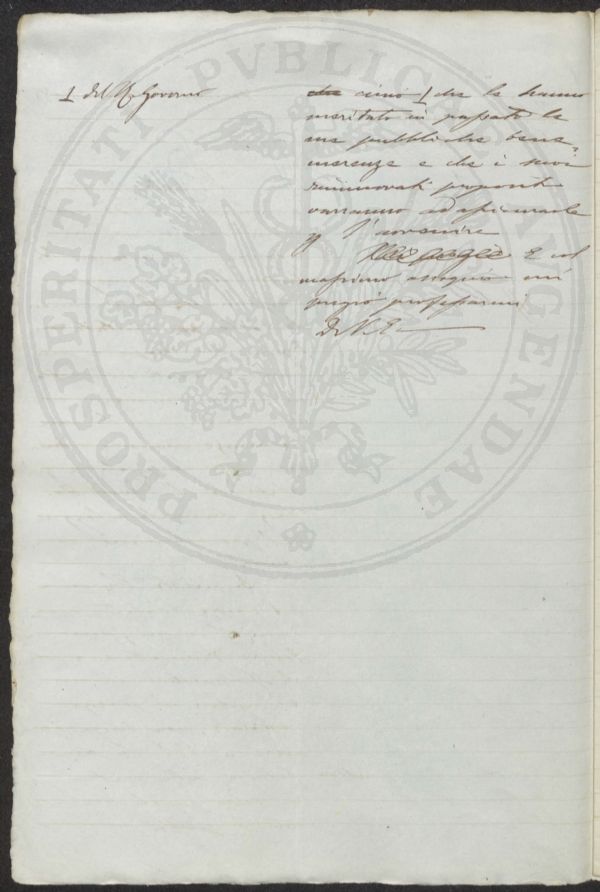 ⊥ del R. Governo
cimo ⊥ che le hanno
meritato in passato le
sue pubbliche bene-
merenze e che i suoi
rinnovati propositi
varranno ad
l'avvenire
E col
massimo ossequio mi
pregio professarmi
Di V. E.
PROSPERITATI PVBLICAE AVGENDAE